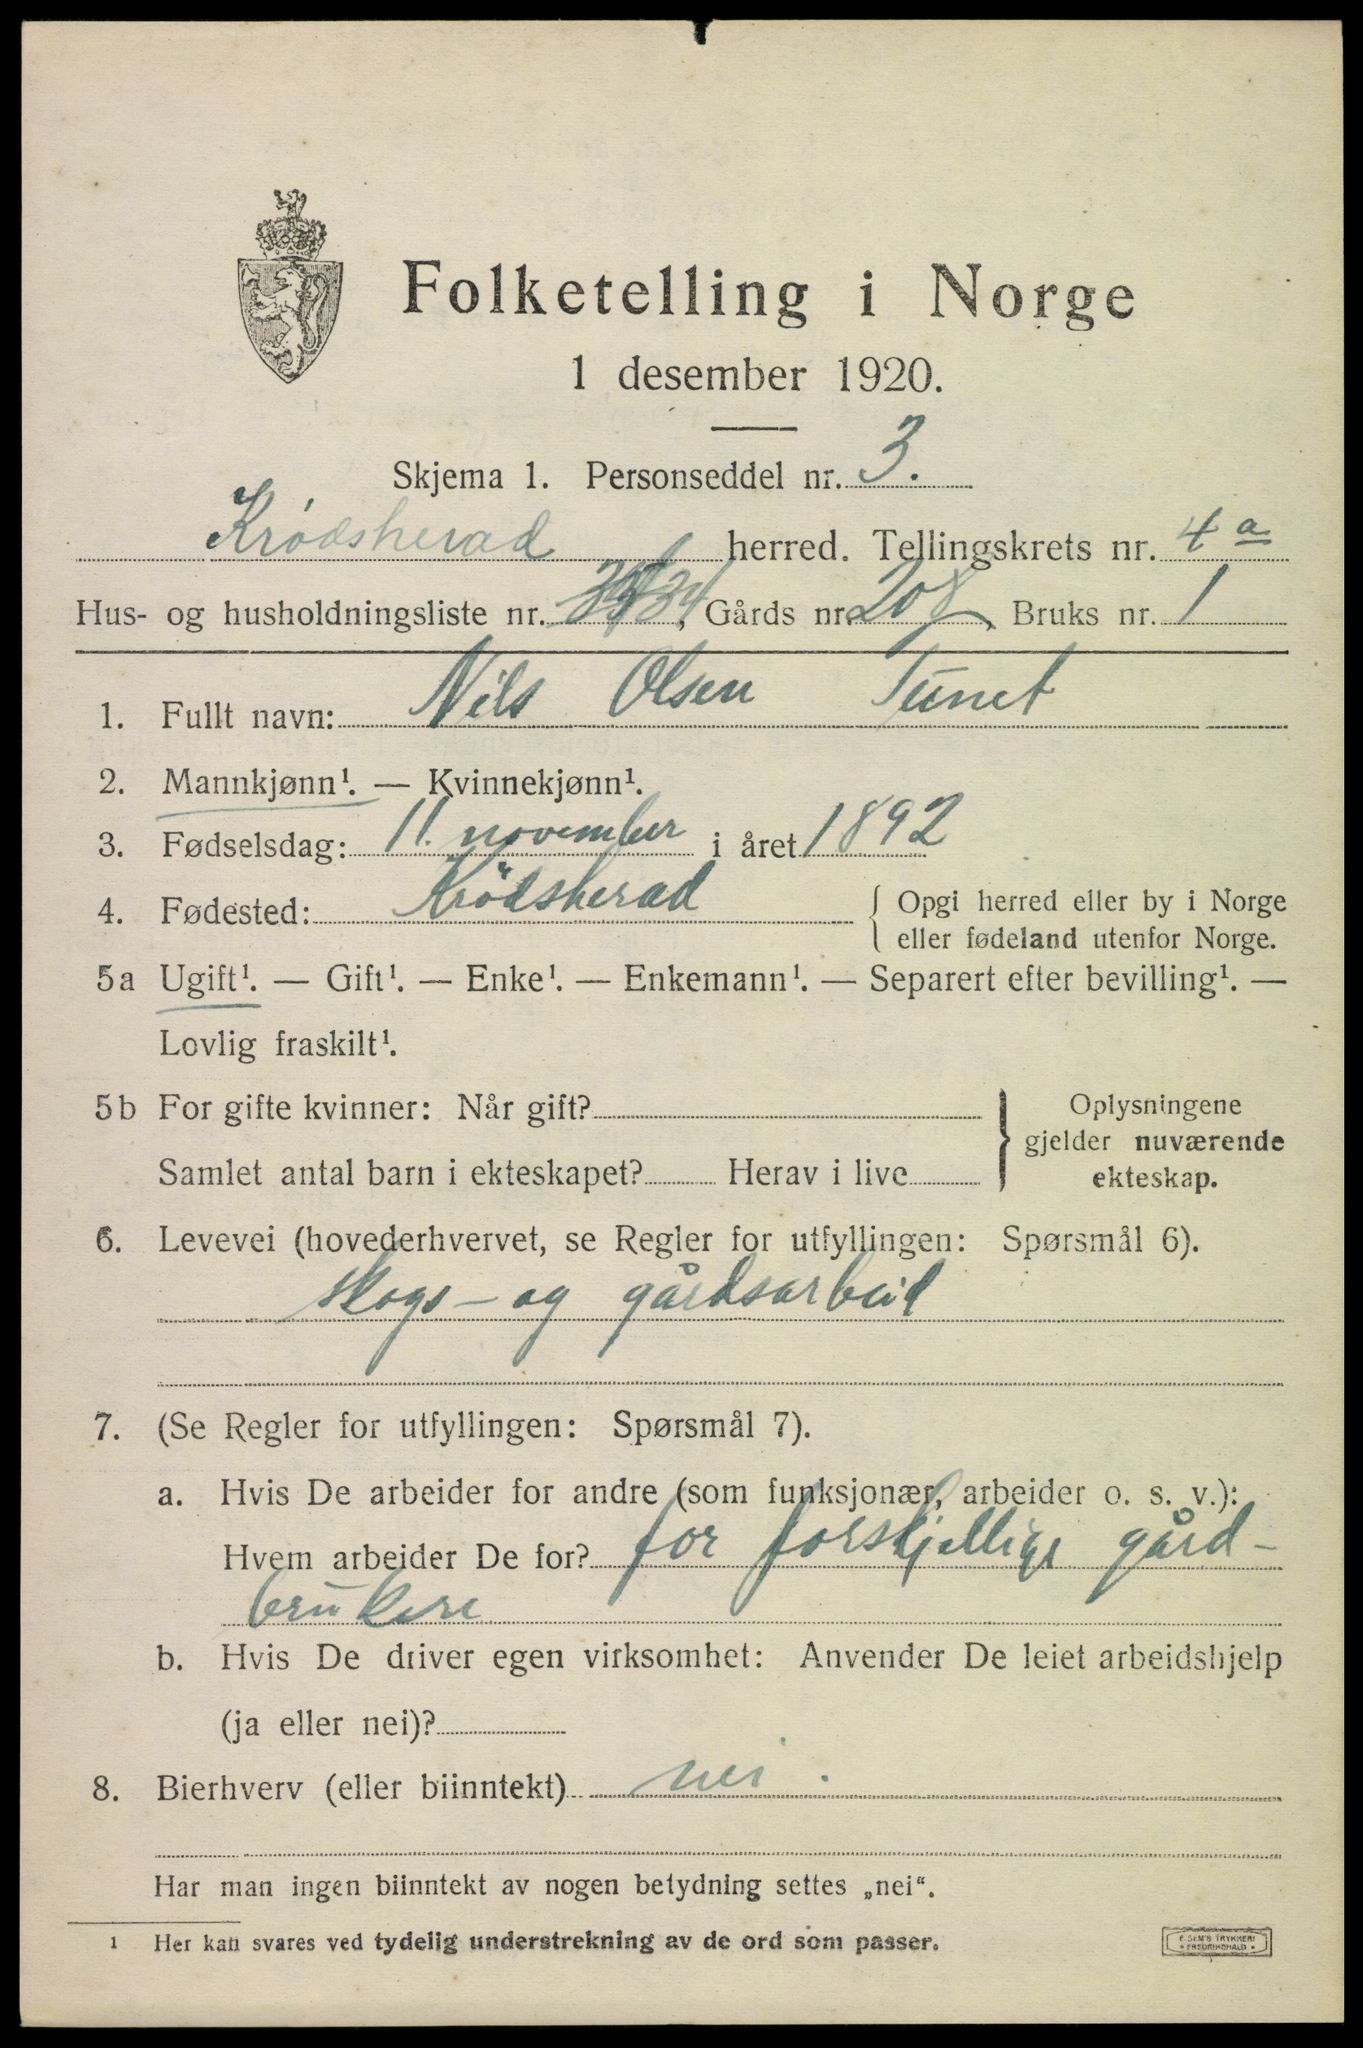 Folketelling i Norge
1 desember 1920.
Skjema 1. Personseddel nr. 3.
Krødsherad herred. Tellingskrets nr. 4 a
Hus- og husholdningsliste nr. 34, Gårds nr. 208, Bruks nr. 1
1. Fullt navn: Nils Olsen Tunet
2. Mannkjønn¹. — Kvinnekjønn¹.
3. Fødselsdag: 11. november i året 1892
4. Fødested: Krødsherad { Opgi herred eller by i Norge
eller fødeland utenfor Norge.
5a Ugift¹. — Gift¹. — Enke¹. — Enkemann¹. — Separert efter bevilling¹. —
Lovlig fraskilt¹.
5b For gifte kvinner: Når gift? } Oplysningene
gjelder nuværende
Samlet antal barn i ekteskapet? Herav i live
ekteskap.
6. Levevei (hovederhvervet, se Regler for utfyllingen: Spørsmål 6).
skogs- og gårdsarbeid
7. (Se Regler for utfyllingen: Spørsmål 7).
a. Hvis De arbeider for andre (som funksjonær, arbeider o. s. v.):
Hvem arbeider De for? for forskjellige gård-
brukere
b. Hvis De driver egen virksomhet: Anvender De leiet arbeidshjelp
(ja eller nei)?
8. Bierhverv (eller biinntekt) nei.
Har man ingen biinntekt av nogen betydning settes „nei“.
¹ Her kan svares ved tydelig understrekning av de ord som passer.
TRYKKERI
FREDRIKSHALD